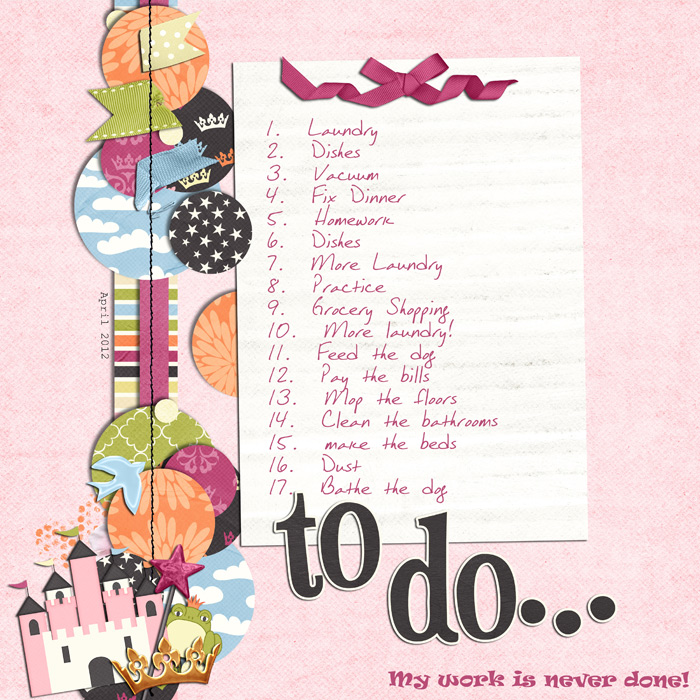 1. Laundry
2. Dishes
3. Vacuum
4. Fix Dinner
5. Homework
6. Dishes
7. More Laundry
8. Practice
9. Grocery Shopping
10. More laundry!
11. Feed the dog
12. Pay the bills
13. Mop the floors
14. Clean the bathrooms
15. make the beds
16. Dust
17. Bathe the dog
April 2012
to
do...
My work is never done!